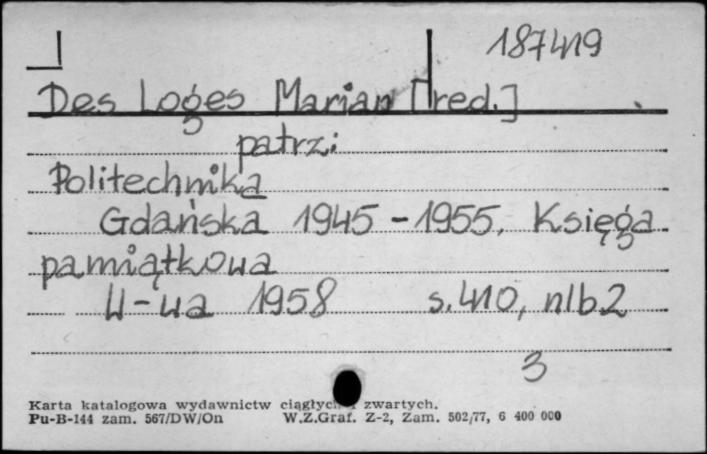 187419
Des Loges Marian [red.]
patrz:
Politechnika
Gdańska 1945-1955. Księga
pamiątkowa
W-wa 1958 s. 410, nlb 2
3
Karta katalogowa wydawnictw ciągłych i zwartych.
Pu-B-144 zam. 567/DW/On W.Z.Graf. Z-2, Zam. 502/77, 6 400 000